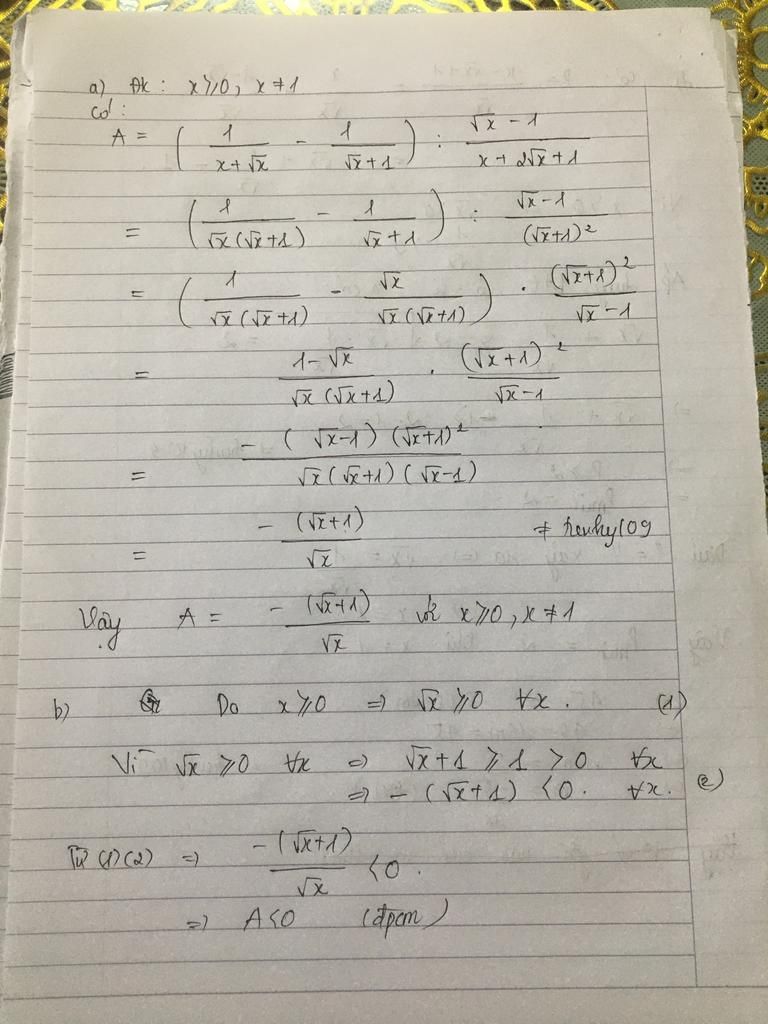 a) Đk: x ⩾ 0, x ≠ 1
có:
A = ( 1/(x+√x) - 1/(√x+1) ) : (√x - 1)/(x + 2√x + 1)
= ( 1/(√x(√x+1)) - 1/(√x+1) ) : (√x-1)/((√x+1)²)
= ( 1/(√x(√x+1)) - √x/(√x(√x+1)) ) . (√x+1)²/(√x-1)
= (1-√x)/(√x(√x+1)) . (√x+1)²/(√x-1)
= -(√x-1)(√x+1)²/(√x(√x+1)(√x-1))
= -(√x+1)/√x
Vậy A = -(√x+1)/√x với x ⩾ 0, x ≠ 1
b) Do x ⩾ 0 => √x ⩾ 0 ∀x. (1)
Vì √x ⩾ 0 ∀x => √x+1 ⩾ 1 > 0 ∀x
=> -(√x+1) < 0. ∀x. (2)
Từ (1)(2) => -(√x+1)/√x < 0.
=> A<0 (đpcm)